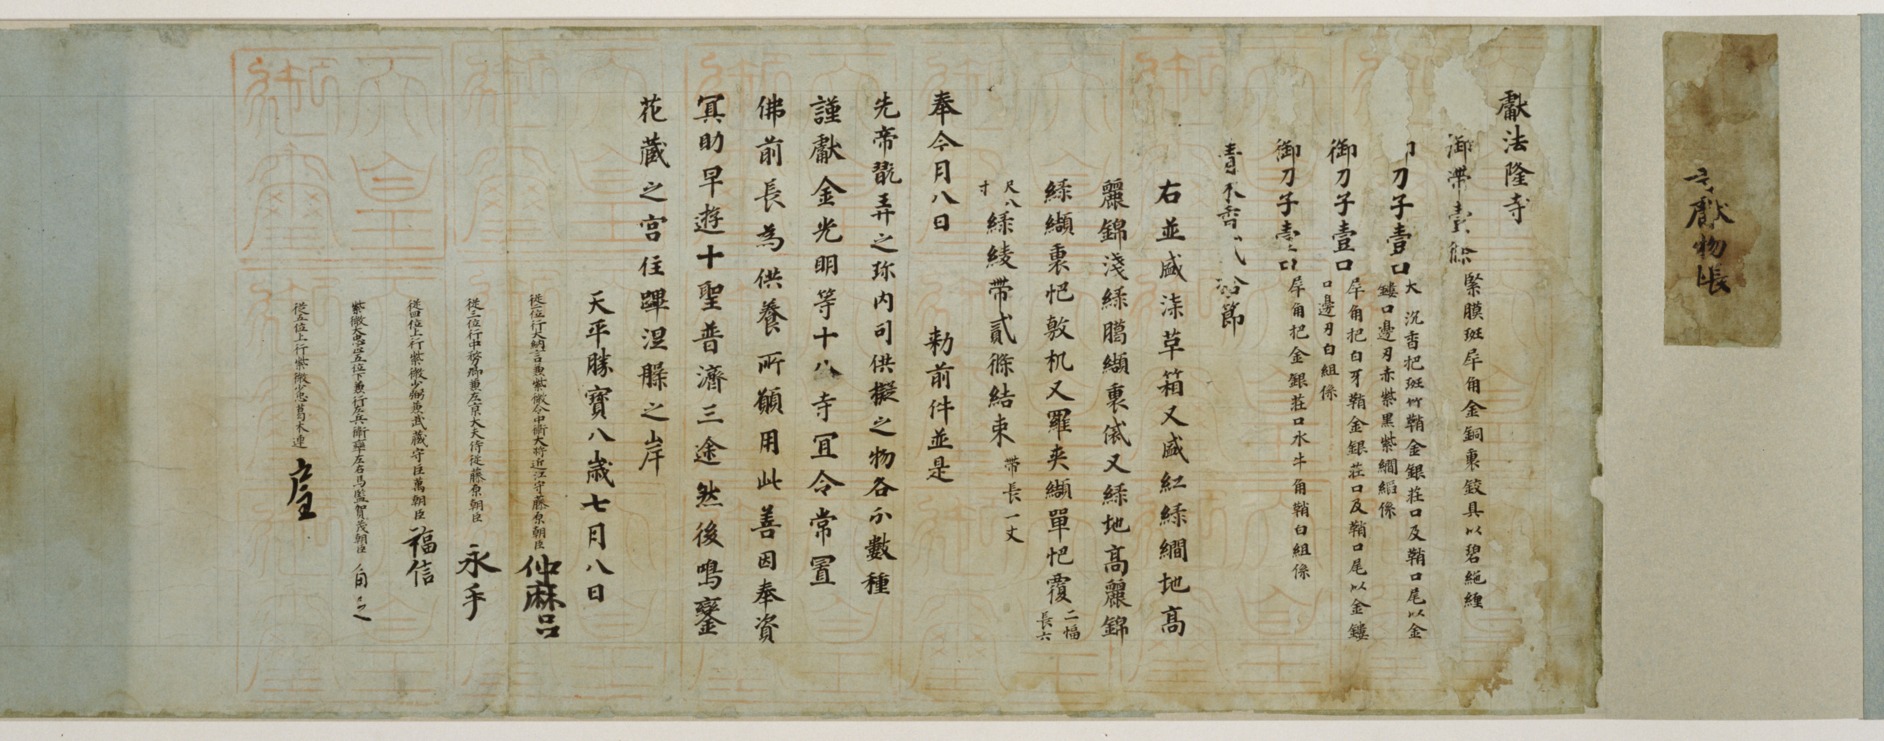 献物帳
獻法隆寺
御帶壹條 緊膜斑犀角金銅裏鉸具以碧絁纏
刀子壹口 大沉香把斑竹鞘金銀莊口及鞘口尾以金
鏤口邊刃赤紫黑紫繝縚係
御刀子壹口 犀角把白牙鞘金銀莊口及鞘口尾以金鏤
口邊刃白組係
御刀子壹口 犀角把金銀莊口水牛角鞘白組係
青木香貳拾節
右並盛柒草箱又盛紅綠繝地高
麗錦淺綠﨟纈裏俿又綠地高麗錦
綠纈裏帊敷机又羅夾纈單帊覆 二幅
長六
尺八
寸 綠綾帶貳條結束 帶長一丈
奉今月八日 勅前件並是
先帝翫弄之珍內司供擬之物各分數種
謹獻金光明等十八寺宜令常置
佛前長為供養所願用此善因奉資
冥助早遊十聖普濟三途然後鳴鑾
花藏之宮住蹕涅槃之岸
天平勝寶八歲七月八日
從二位行大納言兼紫微令中衛大將近江守藤原朝臣 仲麻呂
從三位行中務卿兼左京大夫侍從藤原朝臣 永手
從四位上行紫微少弼兼武藏守巨萬朝臣 福信
紫微大忠正五位下兼行左兵衛率左右馬監賀茂朝臣 角足
從五位上行紫微少忠葛木連 戶主
天皇御璽